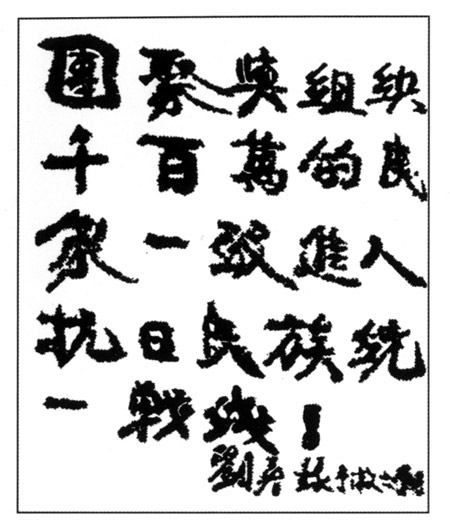 團聚與組织
千百萬的民
衆一致進入
抗日民族統
一戰线！
劉